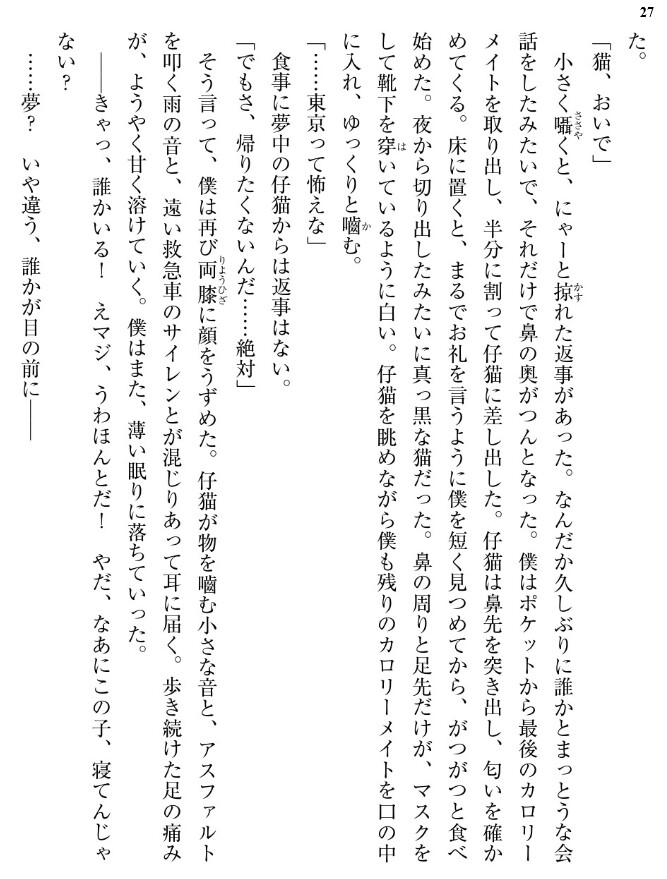 27
た。
「猫、おいで」
小さく囁くと、にゃーと掠れた返事があった。なんだか久しぶりに誰かとまっとうな会
話をしたみたいで、それだけで鼻の奥がつんとなった。僕はポケットから最後のカロリー
メイトを取り出し、半分に割って仔猫に差し出した。仔猫は鼻先を突き出し、匂いを確か
めてくる。床に置くと、まるでお礼を言うように僕を短く見つめてから、がつがつと食べ
始めた。夜から切り出したみたいに真っ黒な猫だった。鼻の周りと足先だけが、マスクを
して靴下を穿いているように白い。仔猫を眺めながら僕も残りのカロリーメイトを口の中
に入れ、ゆっくりと嚙む。
「……東京って怖えな」
食事に夢中の仔猫からは返事はない。
「でもさ、帰りたくないんだ……絶対」
そう言って、僕は再び両膝に顔をうずめた。仔猫が物を嚙む小さな音と、アスファルト
を叩く雨の音と、遠い救急車のサイレンとが混じりあって耳に届く。歩き続けた足の痛み
が、ようやく甘く溶けていく。僕はまた、薄い眠りに落ちていった。
――きゃっ、誰かいる！　えマジ、うわほんとだ！　やだ、なあにこの子、寝てんじゃ
ない？
……夢？　いや違う、誰かが目の前に――